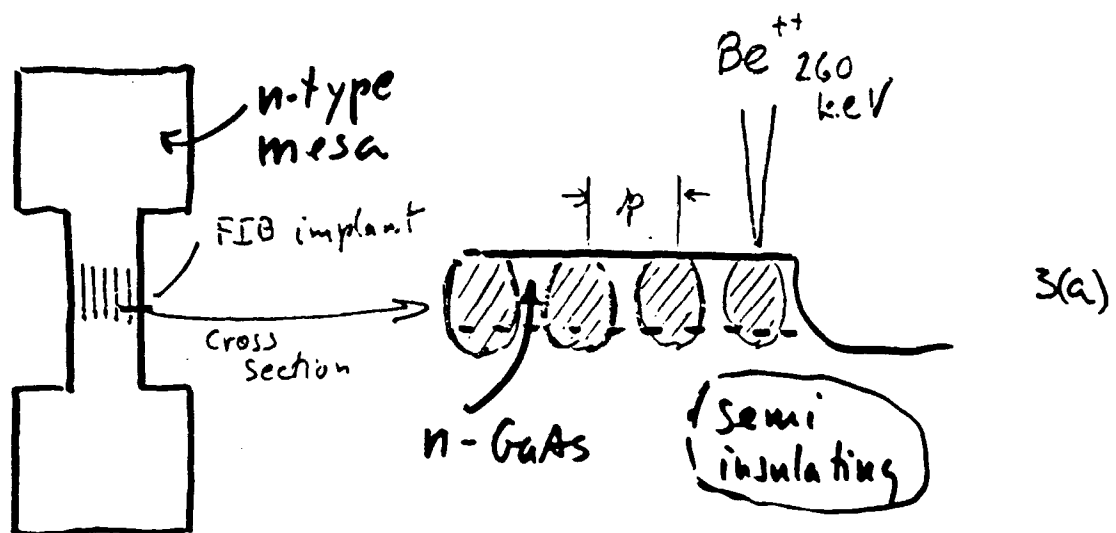 n-type
mesa
FIB implant
Cross
section
n-GaAs
p
Be++
260
keV
semi
insulating
3(a)